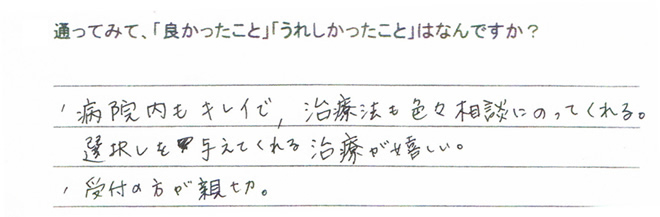 通ってみて、「良かったこと」「うれしかったこと」はなんですか？
、病院内もキレイで、治療法も色々相談にのってくれる。
選択しを与えてくれる治療が嬉しい。
、受付の方が親切。